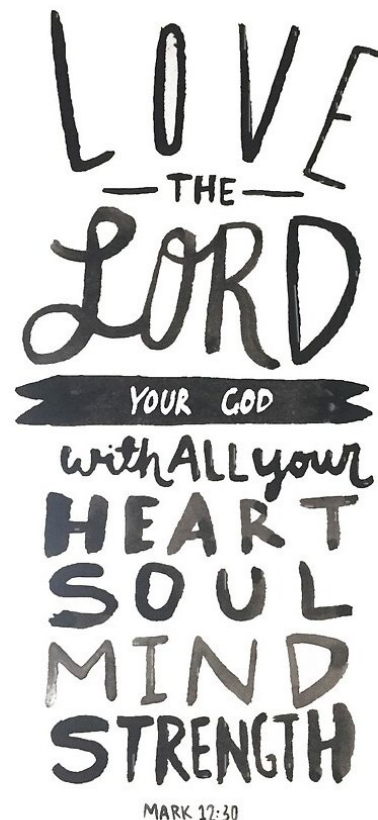 LOVE
THE
LORD
YOUR GOD
with ALL your
HEART
SOUL
MIND
STRENGTH
MARK 12:30